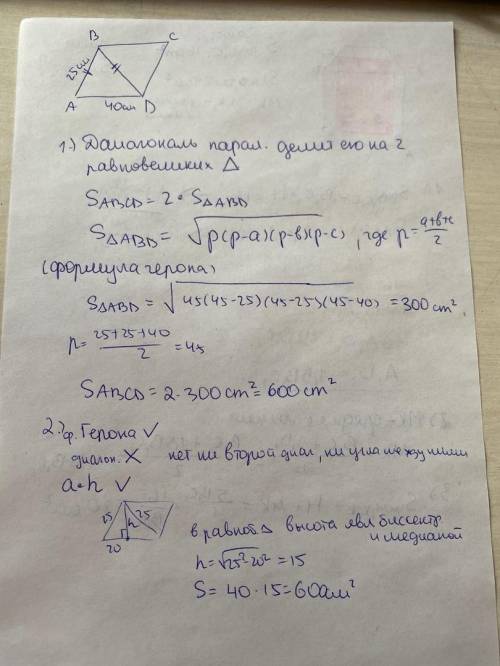 B C
25см
A 40см D
1.) Диагональ парал. делит его на 2
равновеликих Δ
SABCD = 2 · SΔABD
SΔABD = √p(p-a)(p-в)(p-c) , где p = a+в+c/2
(формула герона)
SΔABD = √45(45-25)(45-25)(45-40) = 300 cm²,
p = 25+25+40/2 = 45
SABCD = 2·300cm² = 600 cm²
2.) ф. Герона ✓
диагон. X нет ни второй диаг, ни угла между ними
a·h ✓
25 h 25
20
в равноб Δ высота явл биссектр
и медианой
h = √25²-20² = 15
S = 40·15 = 600см²